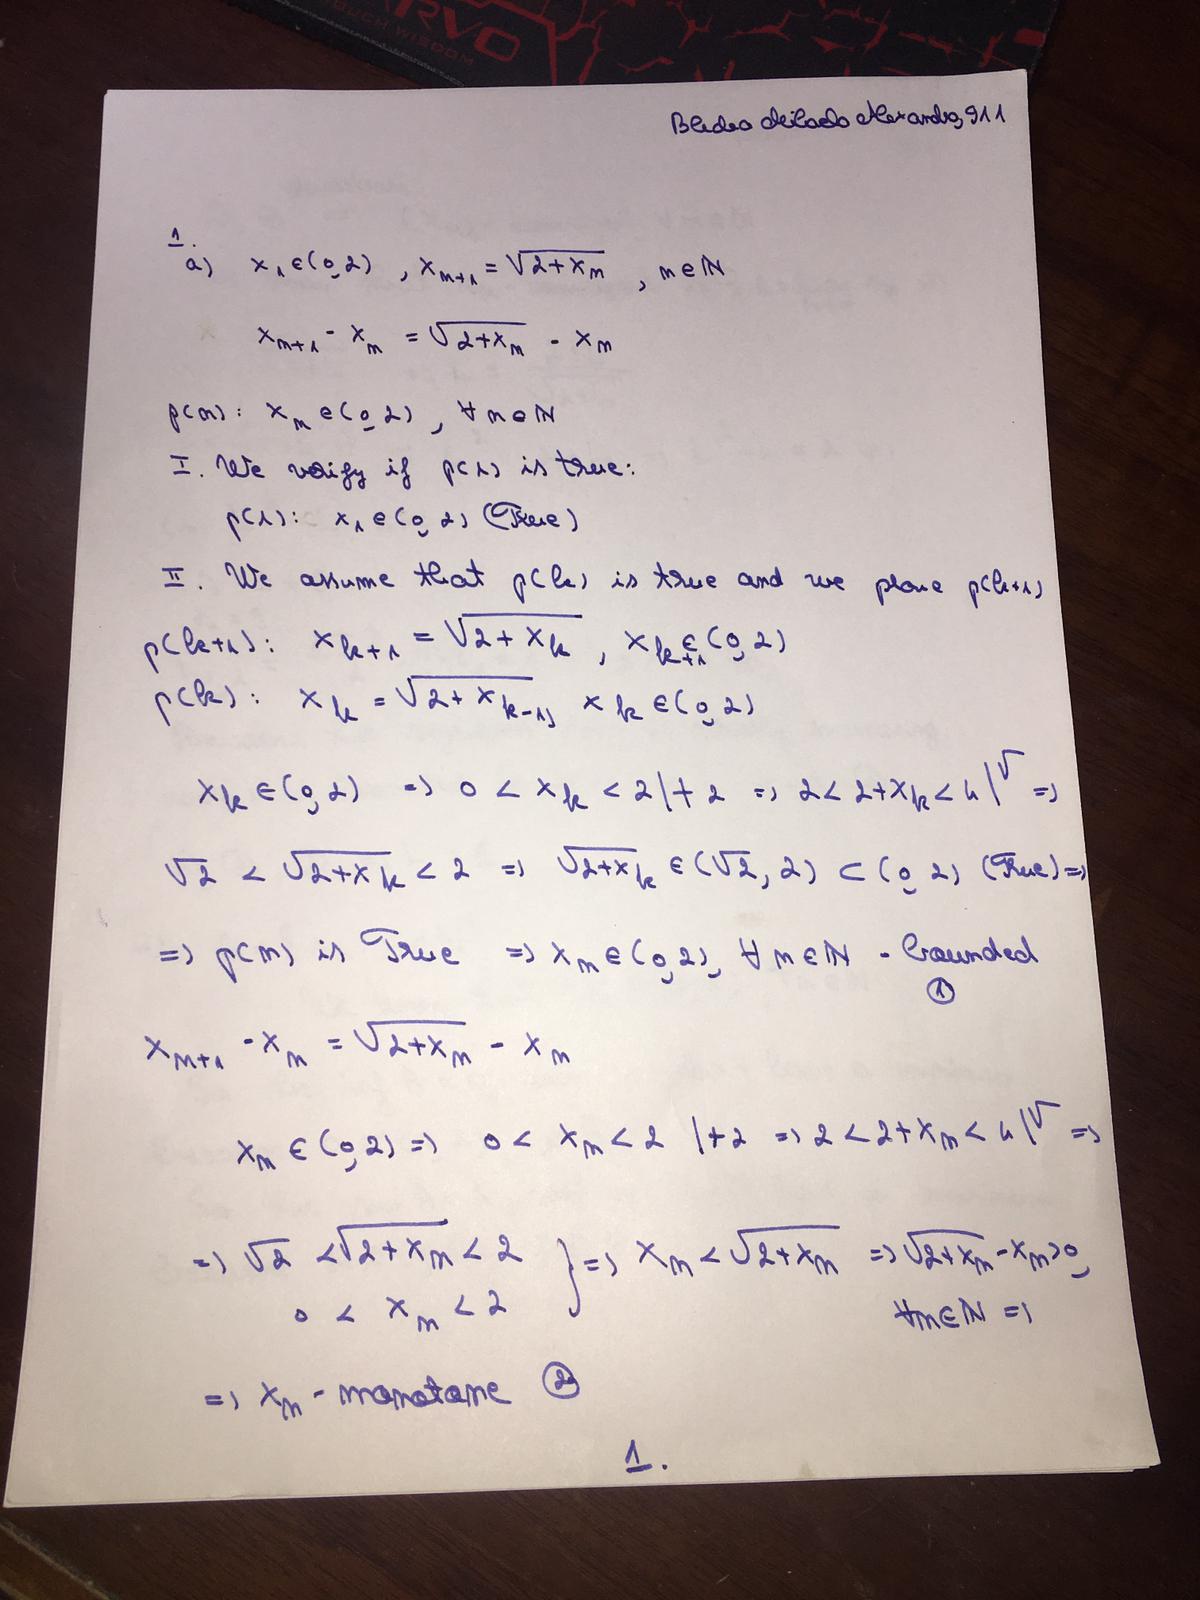 ARVO
TOUCH WISDOM
Alexandra, 911
1.
a) x₁ ∈ (0,2), xₙ₊₁ = √(2+xₙ), n ∈ ℕ
xₙ₊₁ - xₙ = √(2+xₙ) - xₙ
p(n): xₙ ∈ (0,2), ∀ n ∈ ℕ
I. We verify if p(1) is true:
p(1): x₁ ∈ (0,2) (True)
II. We assume that p(k) is true and we prove p(k+1)
p(k+1): xₖ₊₁ = √(2+xₖ), xₖ₊₁ ∈ (0,2)
p(k): xₖ = √(2+xₖ₋₁), xₖ ∈ (0,2)
xₖ ∈ (0,2) => 0 < xₖ < 2 |+2 => 2 < 2+xₖ < 4 |√ =>
√2 < √(2+xₖ) < 2 => √(2+xₖ) ∈ (√2, 2) ⊂ (0,2) (True) =>
=> p(n) is True => xₙ ∈ (0,2), ∀ n ∈ ℕ - bounded
①
xₙ₊₁ - xₙ = √(2+xₙ) - xₙ
xₙ ∈ (0,2) => 0 < xₙ < 2 |+2 => 2 < 2+xₙ < 4 |√ =>
=> √2 < √(2+xₙ) < 2 } => xₙ < √(2+xₙ) => √(2+xₙ) - xₙ > 0,
0 < xₙ < 2 ∀n∈ℕ =>
=> xₙ - monotone ②
1.